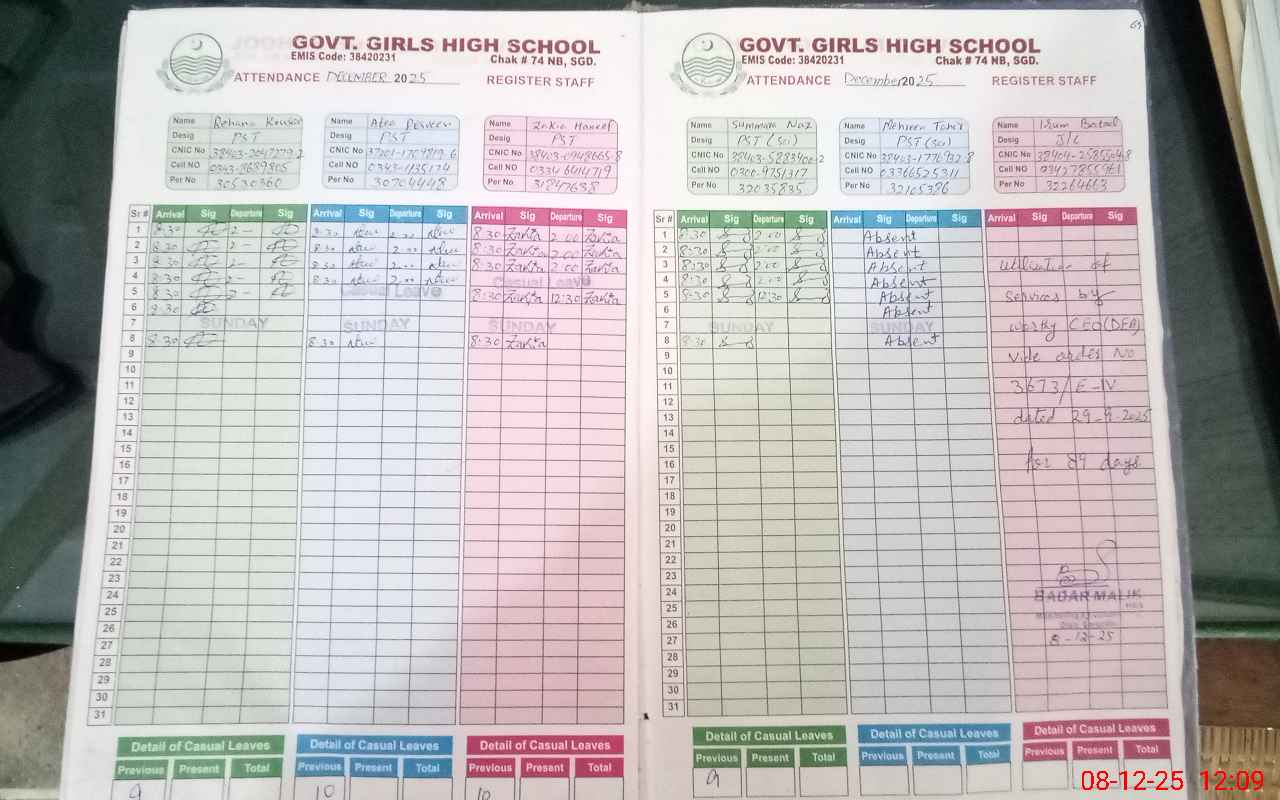 GOVT. GIRLS HIGH SCHOOL
EMIS Code: 38420231 Chak # 74 NB, SGD.
ATTENDANCE DECEMBER 2025 REGISTER STAFF
Name Rehana Kousar
Desig PST
CNIC No
Cell NO
Per No 30530360
Name
Desig PST
CNIC No 37201-1709819-6
Cell NO 0343-1135174
Per No 30704448
Name Zakia Haneef
Desig PST
CNIC No 38403-0948665-8
Cell NO 0334 6414719
Per No 31247638
Sr # Arrival Sig Departure Sig Arrival Sig Departure Sig Arrival Sig Departure Sig
1 8:30 2- 8:30 2.00 8:30 Zakia 2:00 Zakia
2 8:30 2- 8:30 2.00 8:30 Zakia 2:00 Zakia
3 8:30 2- 8:30 2.00 8:30 Zakia 2:00 Zakia
4 8:30 2- 8:30 2.00 Casual Leave
5 8:30 2- Casual Leave 8:30 Zakia 12:30 Zakia
6 8:30
7 SUNDAY SUNDAY SUNDAY
8 8:30 8:30 8:30 Zakia
9
10
11
12
13
14
15
16
17
18
19
20
21
22
23
24
25
26
27
28
29
30
31
Detail of Casual Leaves Detail of Casual Leaves Detail of Casual Leaves
Previous Present Total Previous Present Total Previous Present Total
9 10 10
GOVT. GIRLS HIGH SCHOOL
EMIS Code: 38420231 Chak # 74 NB, SGD.
ATTENDANCE December 2025 REGISTER STAFF
Name Naz
Desig PST (Sci)
CNIC No 38403-5883406-2
Cell NO 0300-9751317
Per No 32035835
Name Mehreen Tahir
Desig PST (Sci)
CNIC No 38403-1776932-8
Cell NO 03366525311
Per No 32105386
Name Irum Batool
Desig
CNIC No
Cell NO
Per No 32264663
Sr # Arrival Sig Departure Sig Arrival Sig Departure Sig Arrival Sig Departure Sig
1 8:30 2:00 Absent
2 8:30 2:00 Absent
3 8:30 2:00 Absent utilization of
4 8:30 2:00 Absent
5 8:30 12:30 Absent Services by
6 Absent
7 SUNDAY SUNDAY worthy CEO (DEA)
8 8:30 Absent
9 vide order No
10
11 3673/E-IV
12
13 dated 29-9-2025
14
15
16 for 89 days
17
18
19
20
21
22
23
24 BADAR MALIK
25
26
27 8-12-25
28
29
30
31
Detail of Casual Leaves Detail of Casual Leaves Detail of Casual Leaves
Previous Present Total Previous Present Total Previous Present Total
9
08-12-25 12:09